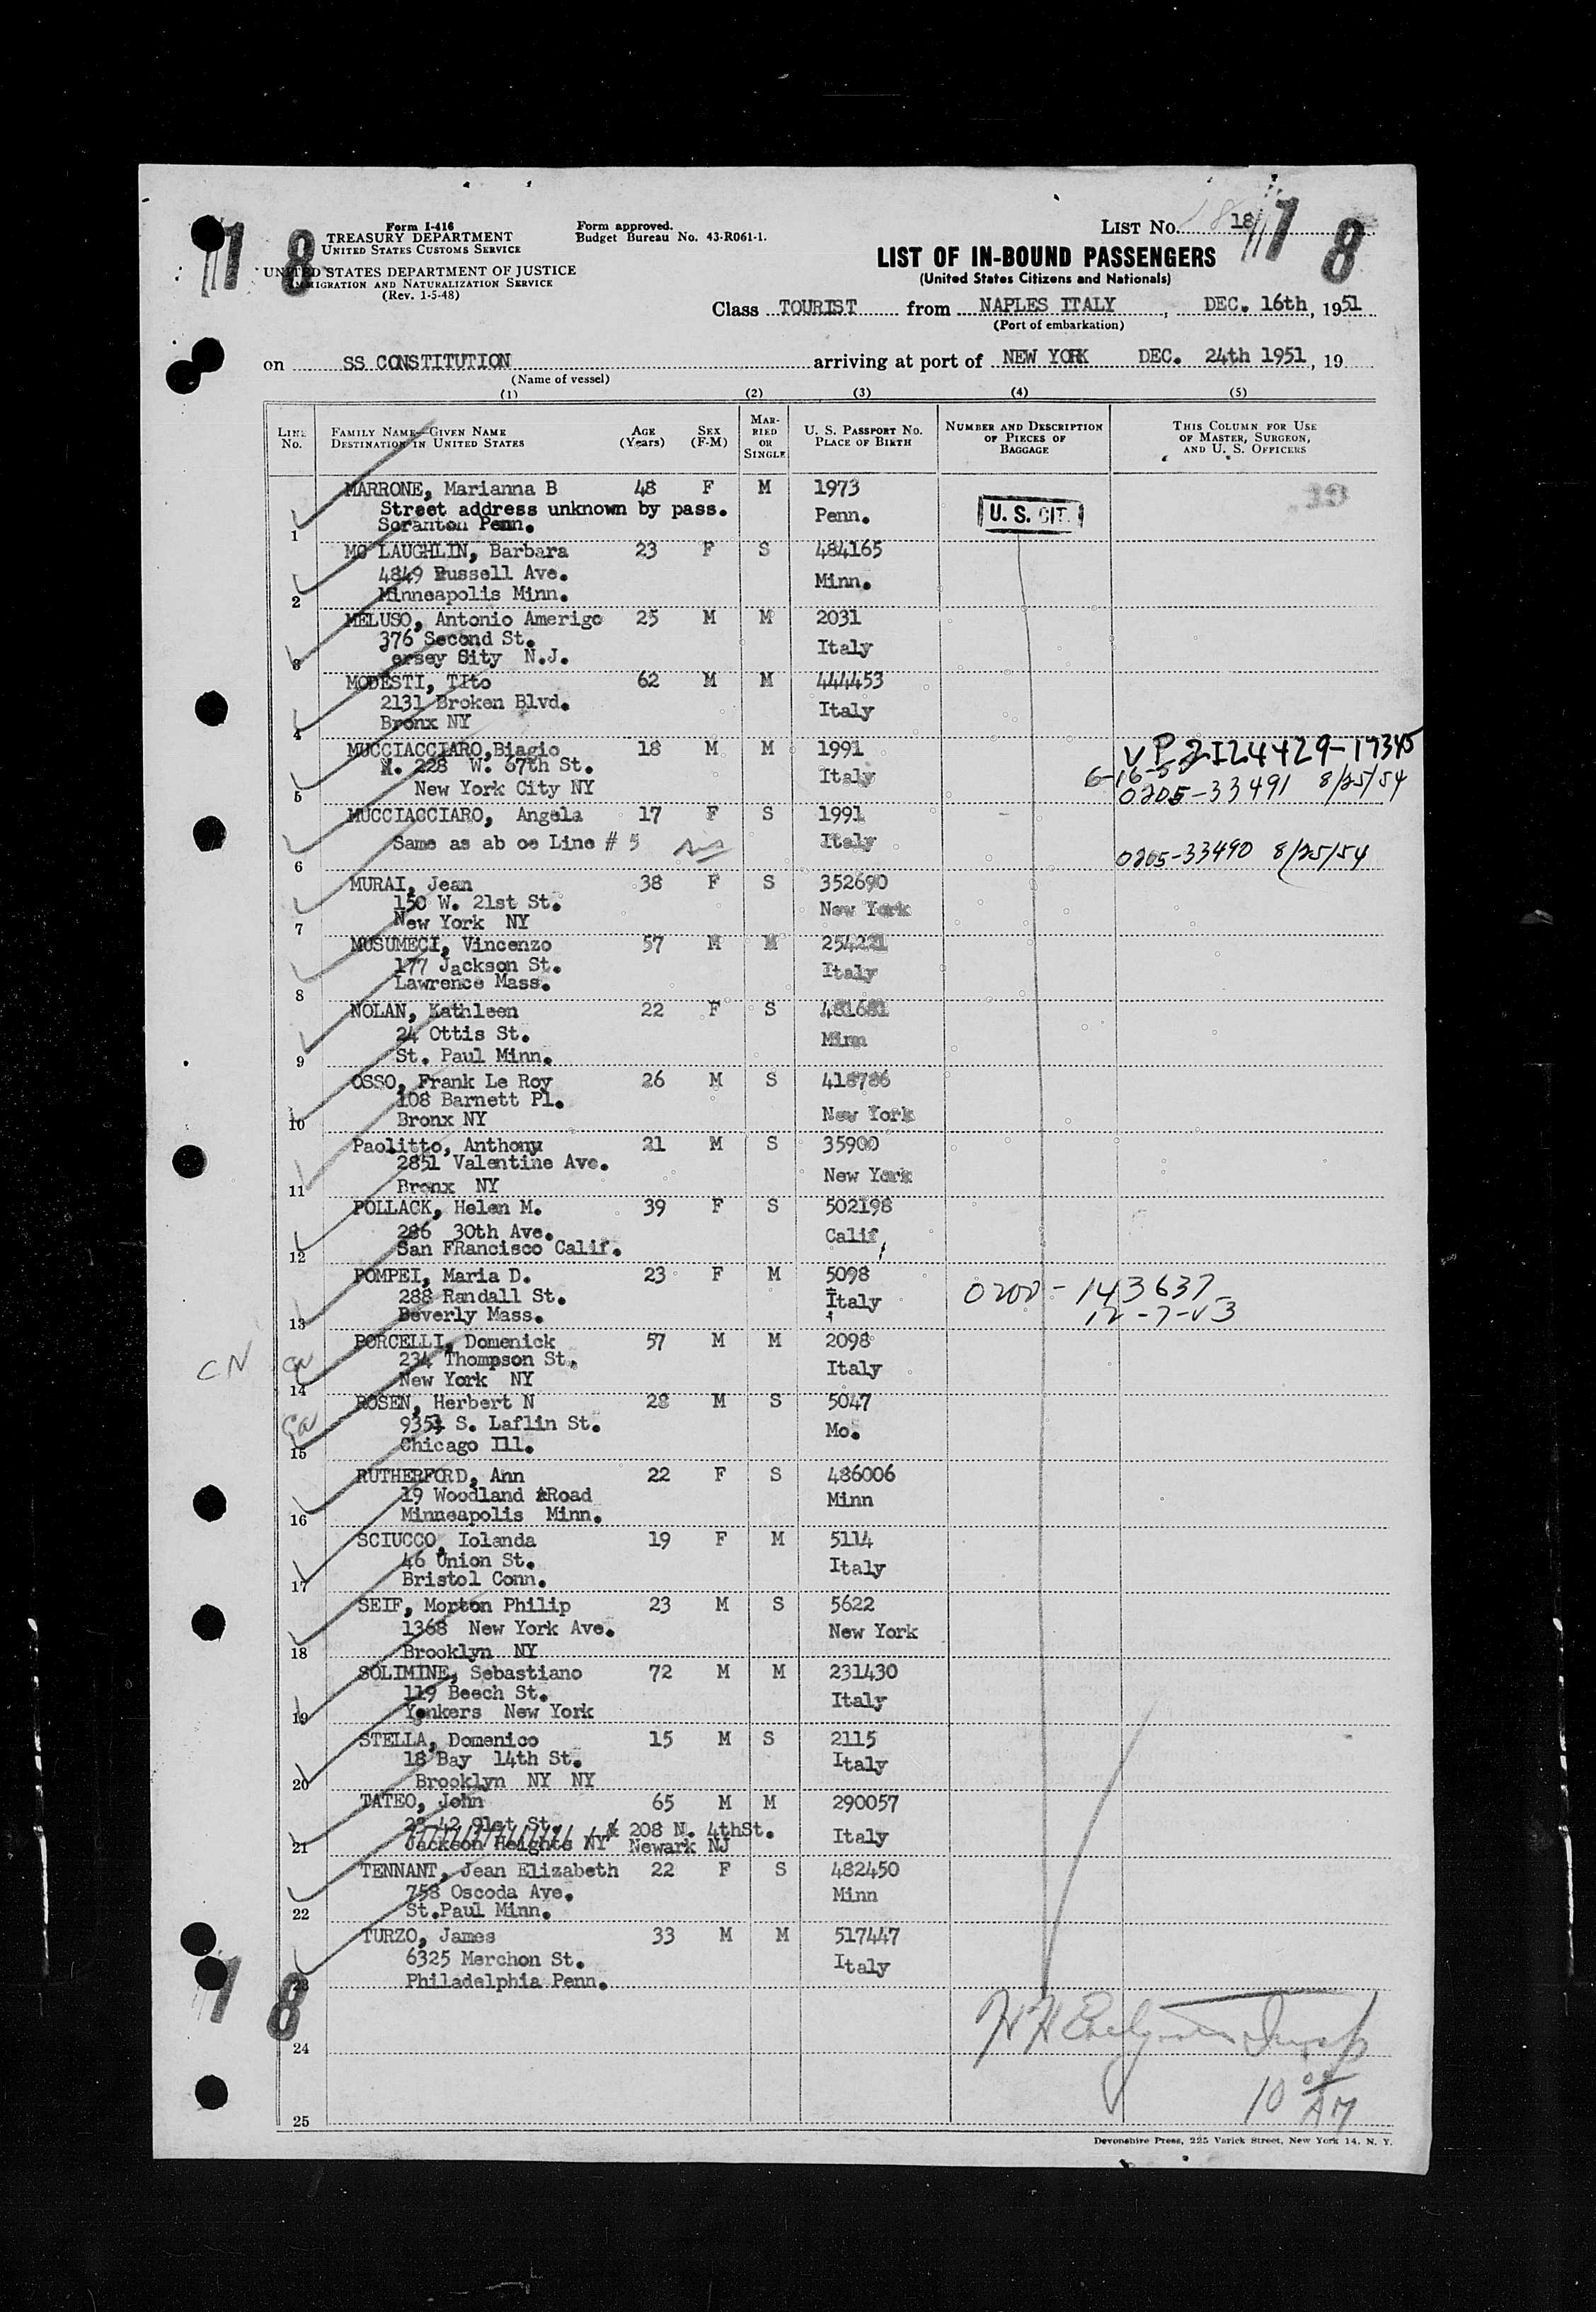 18
18
Form I-416
TREASURY DEPARTMENT
UNITED STATES CUSTOMS SERVICE
UNITED STATES DEPARTMENT OF JUSTICE
IMMIGRATION AND NATURALIZATION SERVICE
(Rev. 1-5-48)
Form approved.
Budget Bureau No. 43-R061-1.
LIST No. 18
LIST OF IN-BOUND PASSENGERS
(United States Citizens and Nationals)
Class TOURIST from NAPLES ITALY, DEC. 16th, 1951
(Port of embarkation)
on SS CONSTITUTION arriving at port of NEW YORK DEC. 24th 1951, 19
(Name of vessel)
(1) (2) (3) (4) (5)
LINE No.
FAMILY NAME—GIVEN NAME
DESTINATION IN UNITED STATES
AGE (Years)
SEX (F-M)
MARRIED OR SINGLE
U. S. PASSPORT No.
PLACE OF BIRTH
NUMBER AND DESCRIPTION OF PIECES OF BAGGAGE
THIS COLUMN FOR USE OF MASTER, SURGEON, AND U. S. OFFICERS
MARRONE, Marianna B 48 F M 1973
Street address unknown by pass. Penn. U. S. CIT.
1 Scranton Penn.
MC LAUGHLIN, Barbara 23 F S 484165
4849 Russell Ave. Minn.
2 Minneapolis Minn.
MELUSO, Antonio Amerigo 25 M M 2031
376 Second St. Italy
3 ersey City N.J.
MODESTI, TIto 62 M M 444453
2131 Broken Blvd. Italy
4 Bronx NY
MUCCIACCIARO,Biagio 18 M M 1991
228 W. 67th St. Italy
5 New York City NY
VP 2I24429-17345
6-16-5
0205-33491 8/25/54
MUCCIACCIARO, Angela 17 F S 1991
Same as ab oe Line # 5 Italy
6 0205-33490 8/25/54
MURAI, Jean 38 F S 352690
150 W. 21st St. New York
7 New York NY
MUSUMECI, Vincenzo 57 M M 254221
177 Jackson St. Italy
8 Lawrence Mass.
NOLAN, Kathleen 22 F S 481681
24 Ottis St. Minn
9 St. Paul Minn.
OSSO, Frank Le Roy 26 M S 418786
108 Barnett Pl. New York
10 Bronx NY
Paolitto, Anthony 21 M S 35900
2851 Valentine Ave. New York
11 Bronx NY
POLLACK, Helen M. 39 F S 502198
286 30th Ave. Calif
12 San FRancisco Calif.
POMPEI, Maria D. 23 F M 5098
288 Randall St. Italy
13 Beverly Mass.
0200-143637
12-7-53
PORCELLI, Domenick 57 M M 2098
234 Thompson St. Italy
CN
14 New York NY
ROSEN, Herbert N 28 M S 5047
9354 S. Laflin St. Mo.
15 Chicago Ill.
RUTHERFORD, Ann 22 F S 486006
19 Woodland Road Minn
16 Minneapolis Minn.
SCIUCCO, Iolanda 19 F M 5114
46 Union St. Italy
17 Bristol Conn.
SEIF, Morton Philip 23 M S 5622
1368 New York Ave. New York
18 Brooklyn NY
SOLIMINE, Sebastiano 72 M M 231430
119 Beech St. Italy
19 Yonkers New York
STELLA, Domenico 15 M S 2115
18 Bay 14th St. Italy
20 Brooklyn NY NY
TATEO, John 65 M M 290057
23-42 91st St. 208 N. 4thSt. Italy
21 Jackson Heights NY Newark NJ
TENNANT, Jean Elizabeth 22 F S 482450
758 Oscoda Ave. Minn
22 St.Paul Minn.
TURZO, James 33 M M 517447
6325 Merchon St. Italy
23 Philadelphia Penn.
18
24
10 00 AM
25
Devonshire Press, 225 Varick Street, New York 14, N. Y.